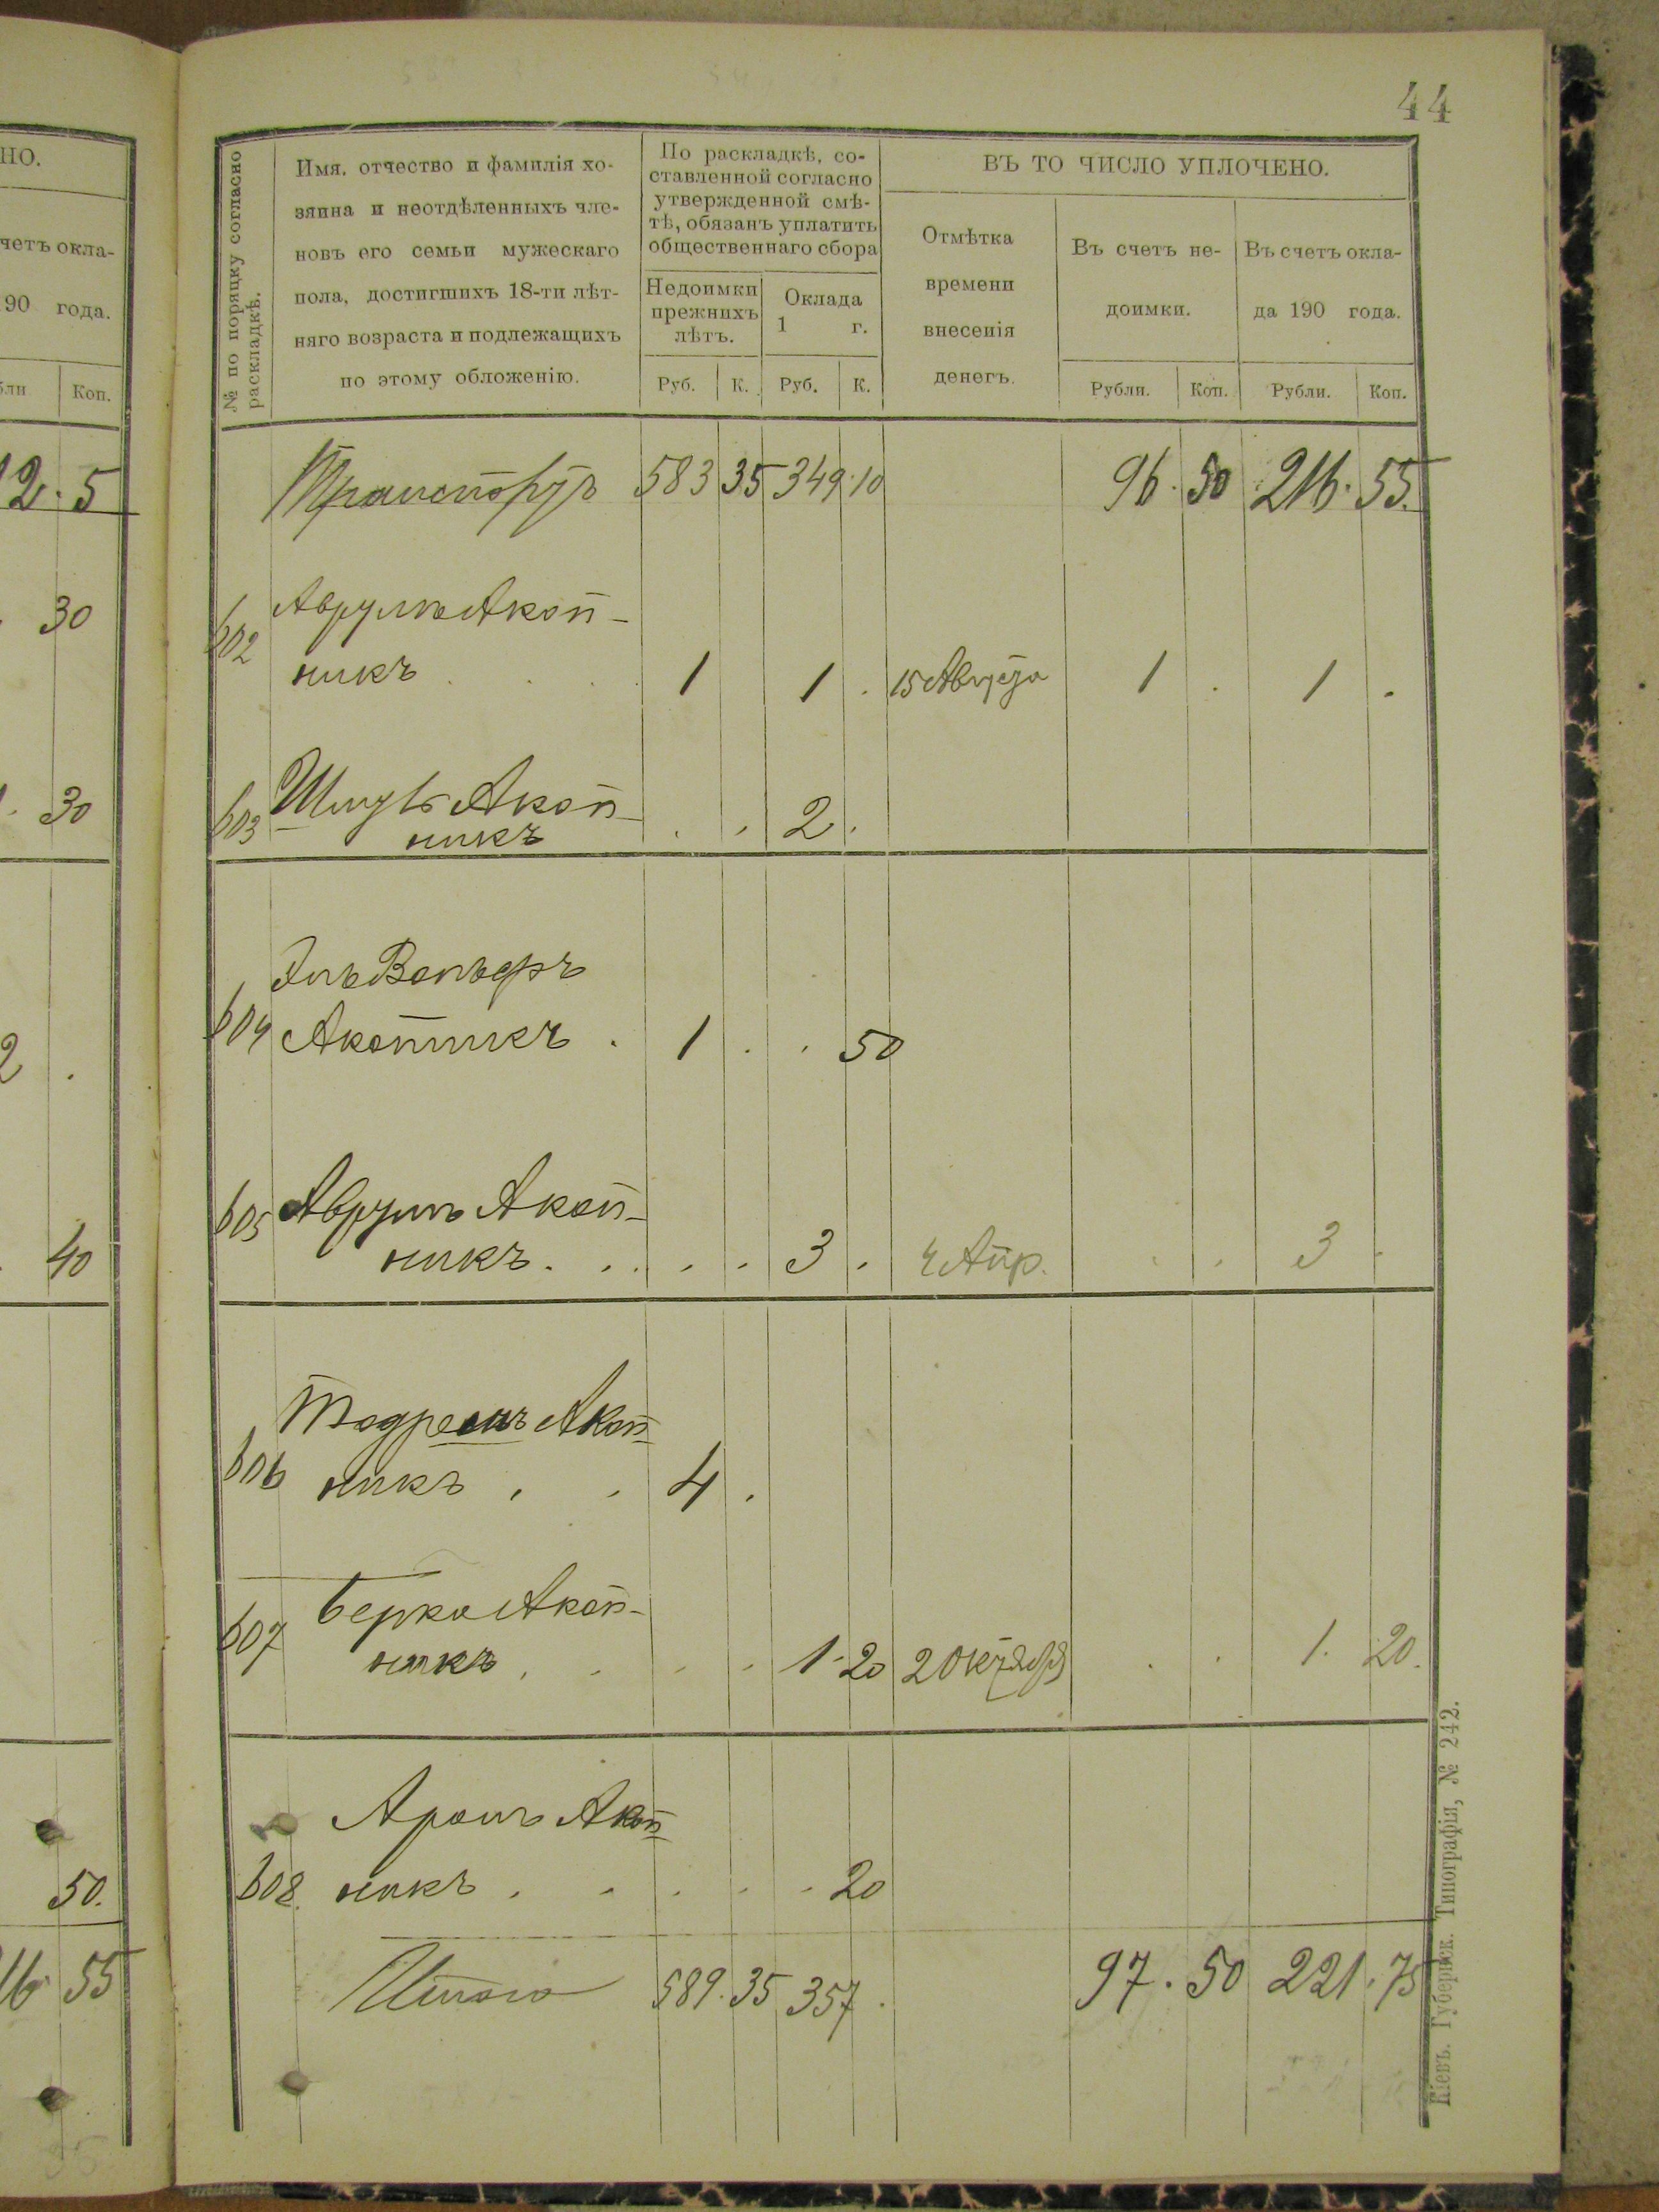 44
НО.
четъ окла-
90 года.
бли Коп.
12. 5
30
30
2 .
40
50.
16 55
№ по порядку согласно
раскладкѣ.
Имя, отчество и фамилія хо-
зяина и неотдѣленныхъ чле-
новъ его семьи мужескаго
пола, достигшихъ 18-ти лѣт-
няго возраста и подлежащихъ
по этому обложенію.
По раскладкѣ, со-
ставленной согласно
утвержденной смѣ-
тѣ, обязанъ уплатить
общественнаго сбора
Недоимки
прежнихъ
лѣтъ.
Оклада
1 г.
Руб. К. Руб. К.
ВЪ ТО ЧИСЛО УПЛОЧЕНО.
Отмѣтка
времени
внесенія
денегъ.
Въ счетъ не-
доимки.
Въ счетъ окла-
да 190 года.
Рубли. Коп. Рубли. Коп.
Транспортъ 583 35 349.10 96. 50 216. 55.
Аврумъ Акоп-
602 никъ . . . 1 1 . 15 Августа 1 . 1 .
603 Акоп-
никъ . . 2 .
Вольфъ
604 Акопникъ . 1 . . 50
605 Аврумъ Акоп-
никъ . . . . . 3 . 4 Апр. . . 3 .
Акоп-
606 никъ . . 4 .
607 Берко Акоп-
никъ . . . . 1. 20 2 Октября . . 1. 20.
Аронъ Акоп-
608. никъ . . . . . 20
Итого 589. 35 357 . 97. 50 221. 75
Кіевъ. Губернск. Типографія, № 242.